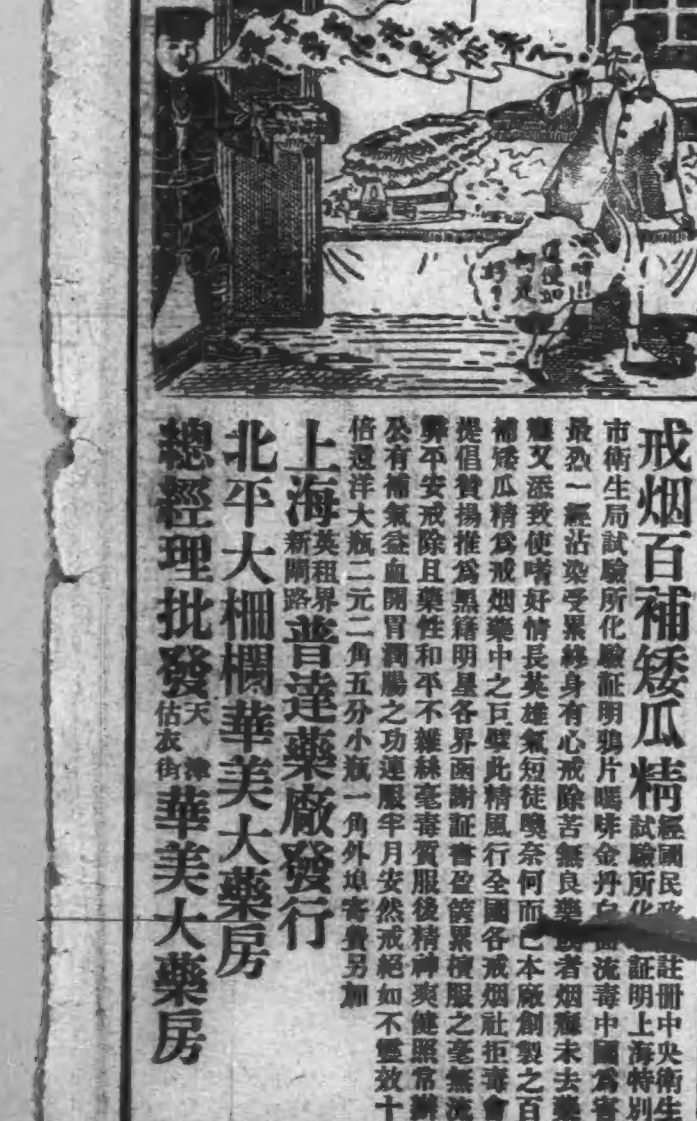 這便如
何是
好？
戒烟百補矮瓜精
經國民政註冊中央衛生
試驗所化証明上海特別
市衛生局試驗所化驗証明鴉片嗎啡金丹白面流毒中國爲害
最烈一經沾染受累終身有心戒除苦無良藥者烟癮未去藥
癮又添致使嗜好情長英雄氣短徒喚奈何而已本廠創製之百
補矮瓜精爲戒烟藥中之巨擘此精風行全國各戒烟社拒毒會
提倡贊揚推爲黑籍明星各界函謝証書盈篋累櫝服之毫無流
弊平安戒除且藥性和平不雜絲毫毒質服後精神爽健照常辦
公有補氣益血開胃潤腸之功連服半月安然戒絕如不靈效十
倍還洋大瓶二元二角五分小瓶一角外埠寄費另加
上海英租界新閘路普達藥廠發行
北平大柵欄華美大藥房
總經理批發天津估衣街華美大藥房